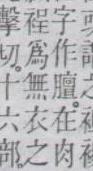 謂之
字作膻。在肉
裎爲無衣之
擊切。十六部。